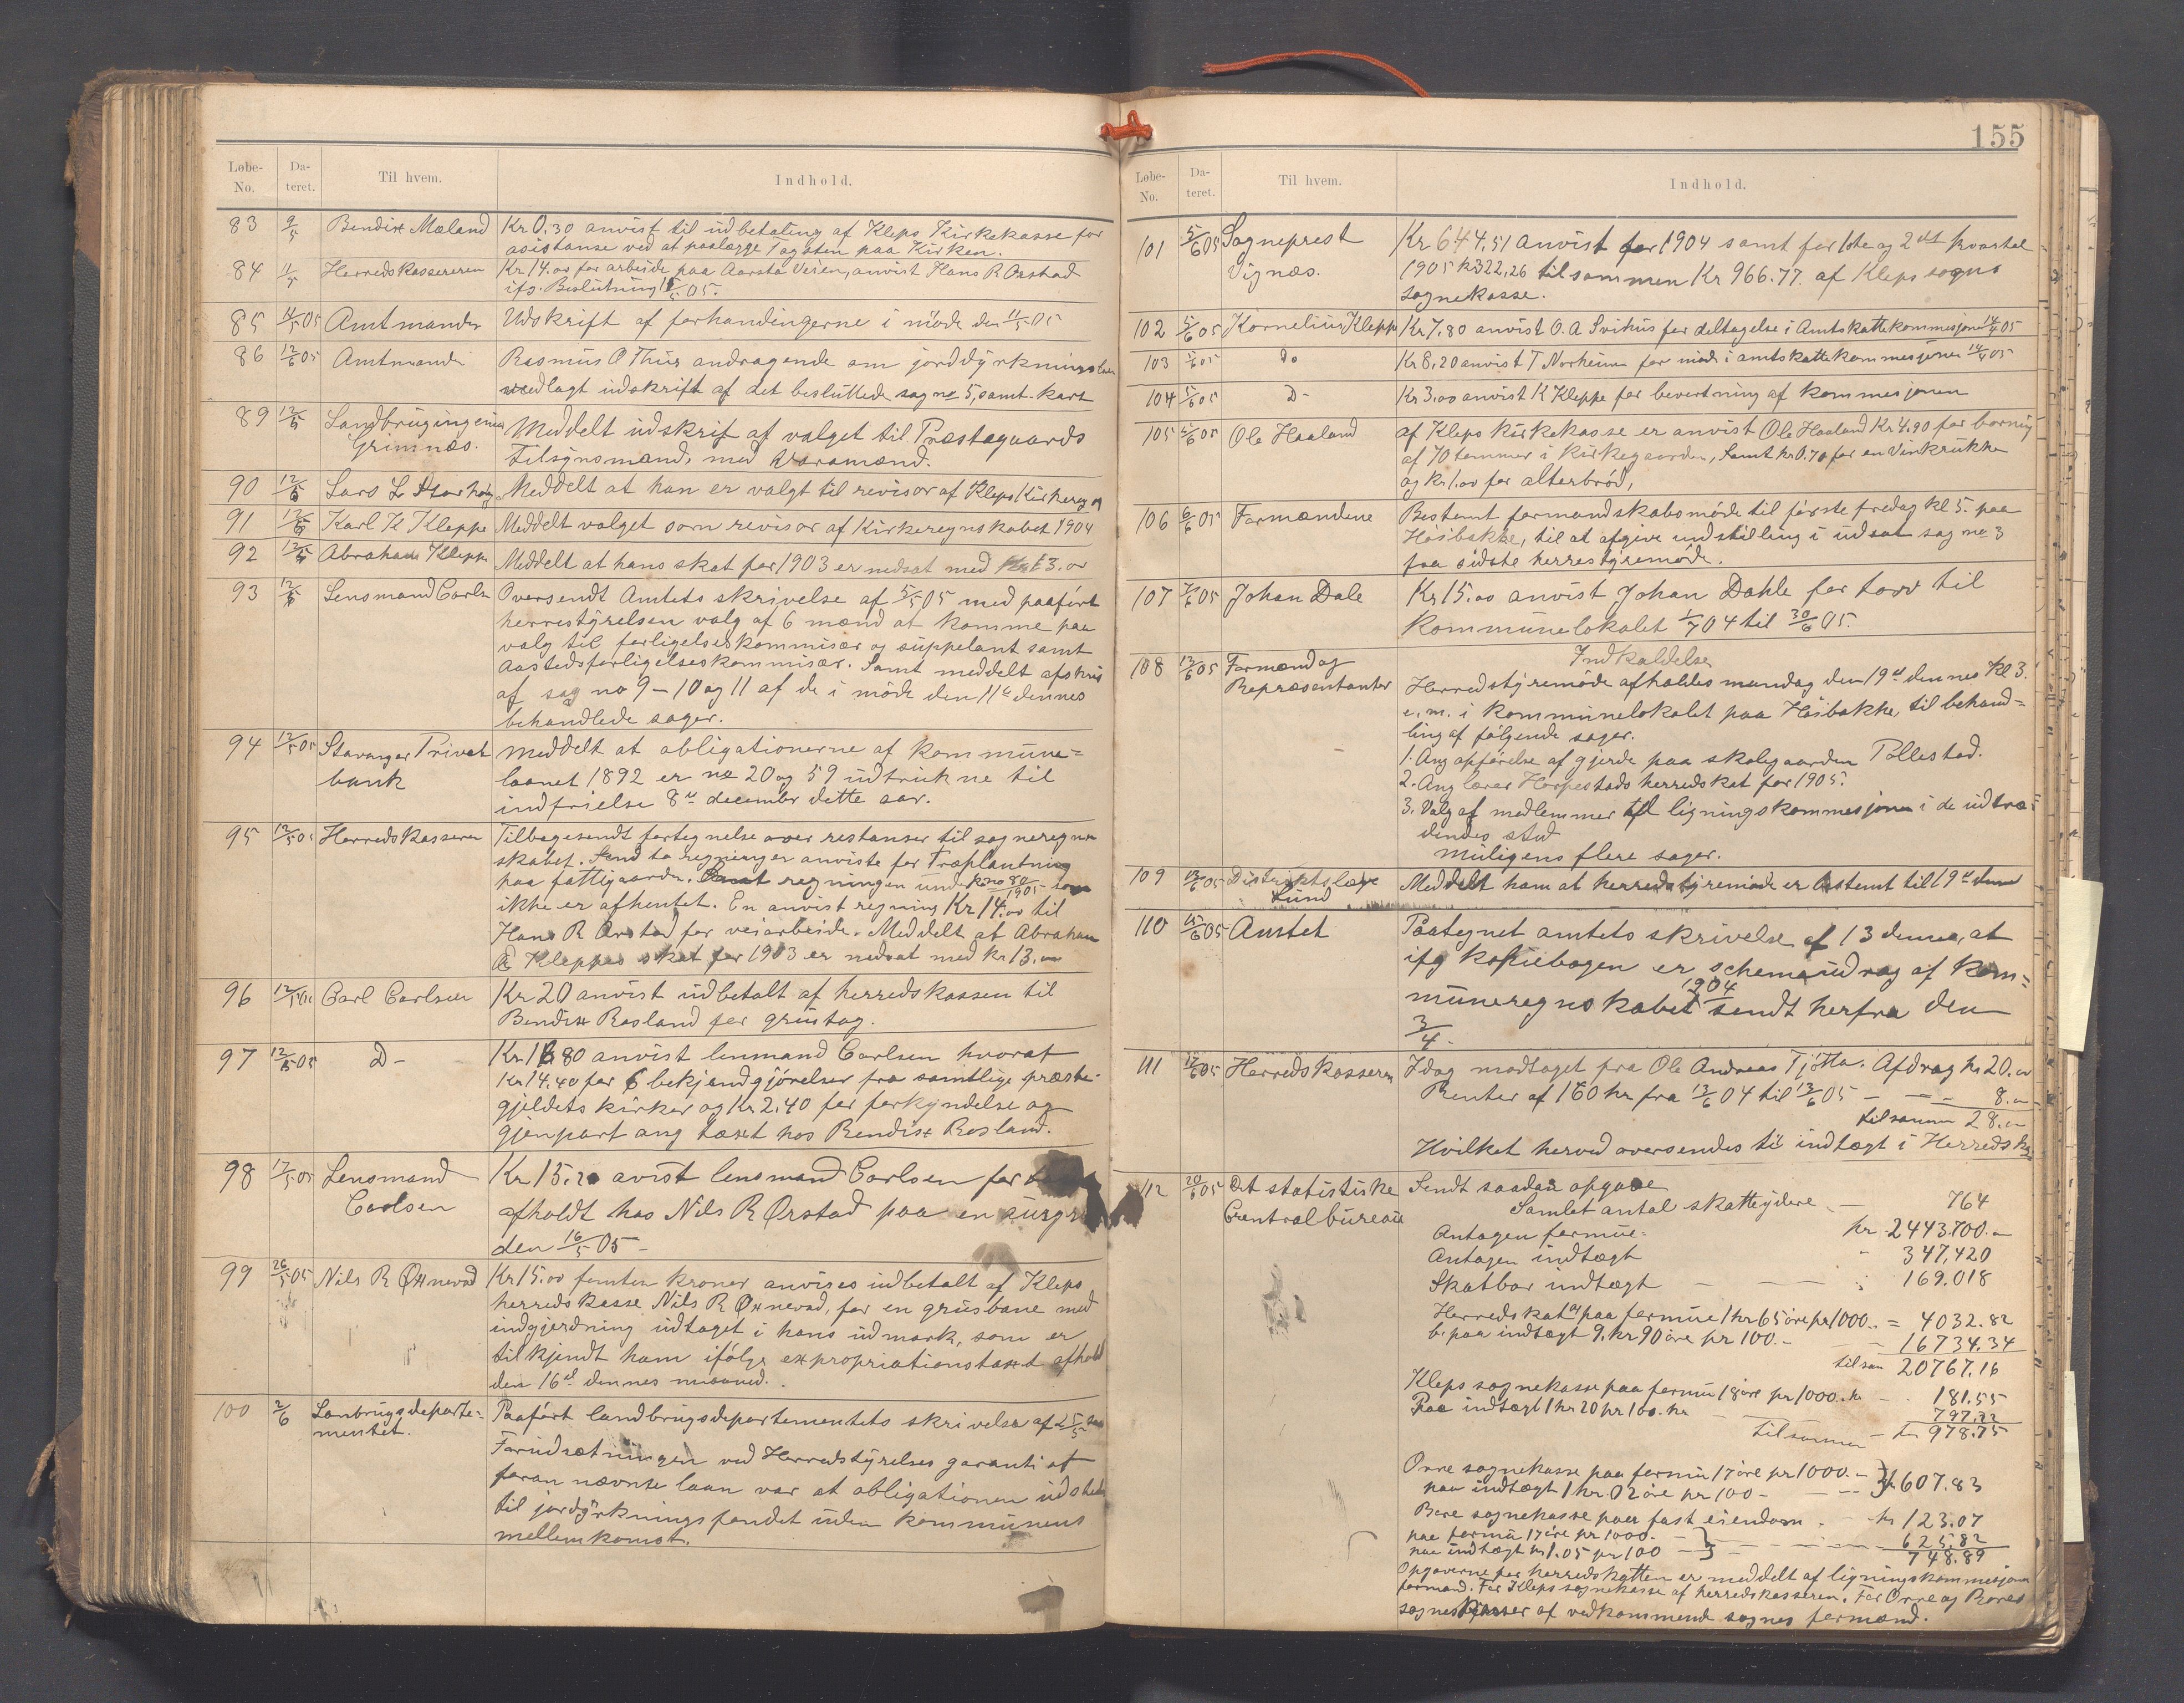 Løbe-No. Dateret. Til hvem. Indhold.
83 9/5 Bendix Mæland Kr 0,30 anvist til udbetaling af Kleps Kirkekasse for
asistanse ved at paalægge Tagsten paa Kirken.
84 11/5 Herredskassereren Kr 14.00 for arbeide paa Aarsta Veien, anvist Hans R Orstad
ifg. Beslutning 11/5 05.
85 11/5 05 Amtmanden Udskrift af forhandingerne i møde den 11/5 05
86 12/5 05 Amtmanden Rasmus O Thus andragende om jorddyrkningslaan
vedlagt udskrift af det besluttede sag no 5, samt kart
89 12/5 Landbrugingeniør Meddelt udskrif af valget til Præstegaards
Grimnæs. Tilsynsmænd, med Varamænd.
90 12/5 Lars L Storhoug Meddelt at han er valgt til revisor af Kleps Kirkereg
91 12/5 Karl K Kleppe Meddelt valget som revisor af Kirkeregnskabet 1904
92 12/5 Abraham Kleppe Meddelt at hans skat for 1903 er nedsat med 13.00
93 12/5 Lensmand Carlsen Oversendt Amtets skrivelse af 5/5 05 med paaført
herrestyrelsen valg af 6 mænd at komme paa
valg til forligelseskommisær og suppelant samt
Aastedsforligelseskommisær. Samt meddelt afskrif
af sag no 9 – 10 og 11 af de i møde den 11te dennes
behandlede sager.
94 12/5 05 Stavanger Privat Meddelt at obligationerne af kommune=
bank laanet 1892 er no 20 og 59 udtrukne til
indfrielse 8de december dette aar.
95 12/5 05 Herredskasseren Tilbagesendt fortegnelse over restanser til sogneregn
skabet. Send to regninger anviste for Træplantning
paa fattiggaarden. regningen under no 80/1905 som
ikke er afhentet. En anvist regning Kr 14.00 til
Hans R Orstad for veiarbeide. Meddelt at Abraham
Kleppes skat for 1903 er nedsat med kr 13.00
96 12/5 05 Carl Carlsen Kr 20 anvist udbetalt af herredskassen til
Bendix Rosland for grustag.
97 12/5 05 D– Kr 16 80 anvist lensmand Carlsen hvoraf
Kr 14.40 for 6 bekjendgjørelser fra samtlige præste-
gjeldets kirker og Kr 2.40 for forkyndelse og
gjenpart ang taxt hos Bendix Rosland.
98 17/5 05 Lensmand Kr 15.20 avist lensmand Carlsen for
Carlsen afholdt hos Nils R Ørstad paa en
den 16/5 05 –
99 26/5 05 Nils R Øxnevad Kr 15.00 femten kroner anvises udbetalt af Kleps
herredskasse Nils R Øxnevad, for en grusbane med
indgjerdning udtaget i hans udmark, som er
tilkjendt ham ifølge expropriationstaxt afhold
den 16de dennes maaned.
100 2/6 Lanbrugsdeparte= Paaført landbrugsdepartementets skrivelse af 25/5
mentet. Forudsætningen ved Herredstyrelses garanti af
foran nævnte laan var at obligationen
til jordyrkningsfondet uden kommunens
mellemkomst.

155
Løbe-No. Dateret. Til hvem. Indhold.
101 5/6 05 Sogneprest Kr 644.51 anvist for 1904 samt for 1ste og 2det kvartal
Vignæs. 1905 kr 322,26 tilsammen Kr 966.77. af Kleps sogns
sognekasse.
102 5/6 05 Kornelius Kleppe Kr 7.80 anvist O. A Svihus for deltagelse i Amtskattekommesjonen 14/4 05
103 5/6 05 do Kr 8,20 anvist T Norheim for møde i amtskattekommesjonen 14/4 05
104 5/6 05 D– Kr 3.00 anvist K Kleppe for bevertning af kommesjonen
105 5/6 05 Ole Haaland af Kleps Kirkekasse er anvist Ole Haaland Kr 4,90 for boring
af 70 tommer i kirkegaarden, Samt kr 0.70 for en Vinkrukke
og kr 1.00 for alterbrød,
106 6/6 05 Formændene Bestemt formandskabsmøde til første fredag kl 5. paa
Høibakke, til at afgive indstilling i udsat sag no 3
fra sidste herrestyremøde.
107 7/6 05 Johan Dale Kr 15.00 anvist Johan Dahle for torv til
kommunelokalet 1/7 04 til 30/6 05.
108 13/6 05 Formænd og Indkaldelse
Repræsentanter Herredstyremøde afholdes mandag den 19de dennes kl 3.
e.m. i kommunelokalet paa Høibakke, til behand=
ling af følgende sager.
1. Ang opførelse af gjerde paa skolegaarden Pollestad.
2. Ang lærer Horpestads herredskat for 1905.
3. Valg af medlemmer til ligningskommesjonen i de udtræ=
dendes sted
Muligens flere sager.
109 13/6 05 Distriktslæge Meddelt ham at herredstyremøde er bestemt til 19de dennes
Lund
110 15/6 05 Amtet Paategnet amtets skrivelse af 13 dennes, at
ifg kopiebogen er schemaudrag af kom=
muneregnskabet 1904 sendt herfra den
3/4.
111 17/6 05 Herredskasseren Idag modtaget fra Ole Andreas Tjøtta. Afdrag kr 20.00
Renter af 160 kr fra 13/6 04 til 13/6 05 – – – 8.00
tilsamm 28.00
Hvilket herved oversendes til indtægt i Herredsk
112 20/6 05 Det statistiske Sendt saadan opgave
Centralbureau Samlet antal skatteydere – 764
Antagen formue. kr. 2443.700.00
Antagen indtægt " 347,420
Skatbar indtægt – – – " 169.018
Herredskat a) paa formue 1 kr 65 øre pr 1000.. = 4032.82
b. paa indtægt 9. kr 90 øre pr 100. – – 16734.34
tilsam 20767.16
Kleps sognekasse paa formue 18 øre pr 1000. kr – – 181.55
Paa indtægt 1 kr 20 pr 100. kr – 797.22
tilsammen – kr 978.75
Orre sognekasse paa formue 17 øre pr 1000. –
paa indtægt 1 kr. 02 øre pr 100 – – – – 607.83
Bore sognekasse paa fast eiendom. – kr 123.07
paa formue 17 øre pr 1000. –
paa indtægt kr 1.05 pr 100 – – – – 625.82
748.89
Opgaverne for herredskatten er meddelt af ligningskommesjonens
formand. For Kleps sognekasse af herredskasseren. For Orre og Bores
sognekasser af vedkommende sognes formænd.